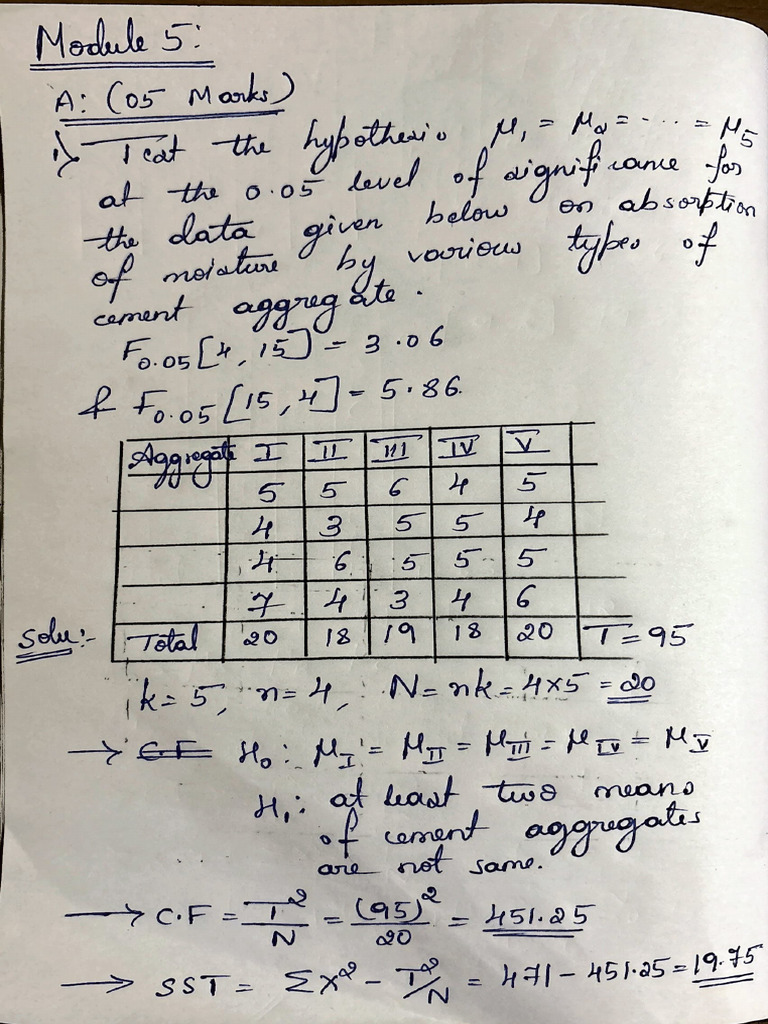 Module 5:
A: (05 Marks)
1) Test the hypothesis μ₁ = μ₂ = ---- = μ₅
at the 0.05 level of significance for
the data given below on absorption
of moisture by various types of
cement aggregate.
F₀.₀₅[4, 15] = 3.06
& F₀.₀₅[15, 4] = 5.86.
Aggregate I II III IV V
5 5 6 4 5
4 3 5 5 4
4 6 5 5 5
7 4 3 4 6
Solu:- Total 20 18 19 18 20 T = 95
k = 5, n = 4, N = nk = 4×5 = 20
→ C.F H₀: μ_I = μ_II = μ_III = μ_IV = μ_V
H₁: at least two means
of cement aggregates
are not same.
→ C.F = T²/N = (95)²/20 = 451.25
→ SST = ΣX² - T²/N = 471 - 451.25 = 19.75